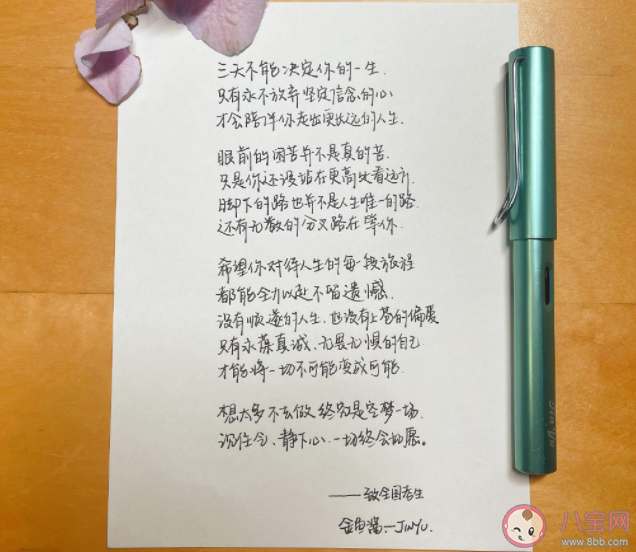 三天不能决定你的一生.
只有永不放弃坚定信念的心
才会陪伴你走出更长远的人生.
眼前的困苦并不是真的苦.
只是你还没站在更高处看远方
脚下的路也并不是人生唯一的路.
还有无数的分叉路在等你.
希望你对待人生的每一段旅程
都能全力以赴不留遗憾.
没有顺遂的人生.也没有上苍的偏爱
只有永葆真诚、无畏无惧的自己
才能将一切不可能变成可能.
想太多不去做 终究是空梦一场.
沉住气、静下心.一切终会如愿。
——致全国考生
金
JINYU.
八宝网
www.8bb.com